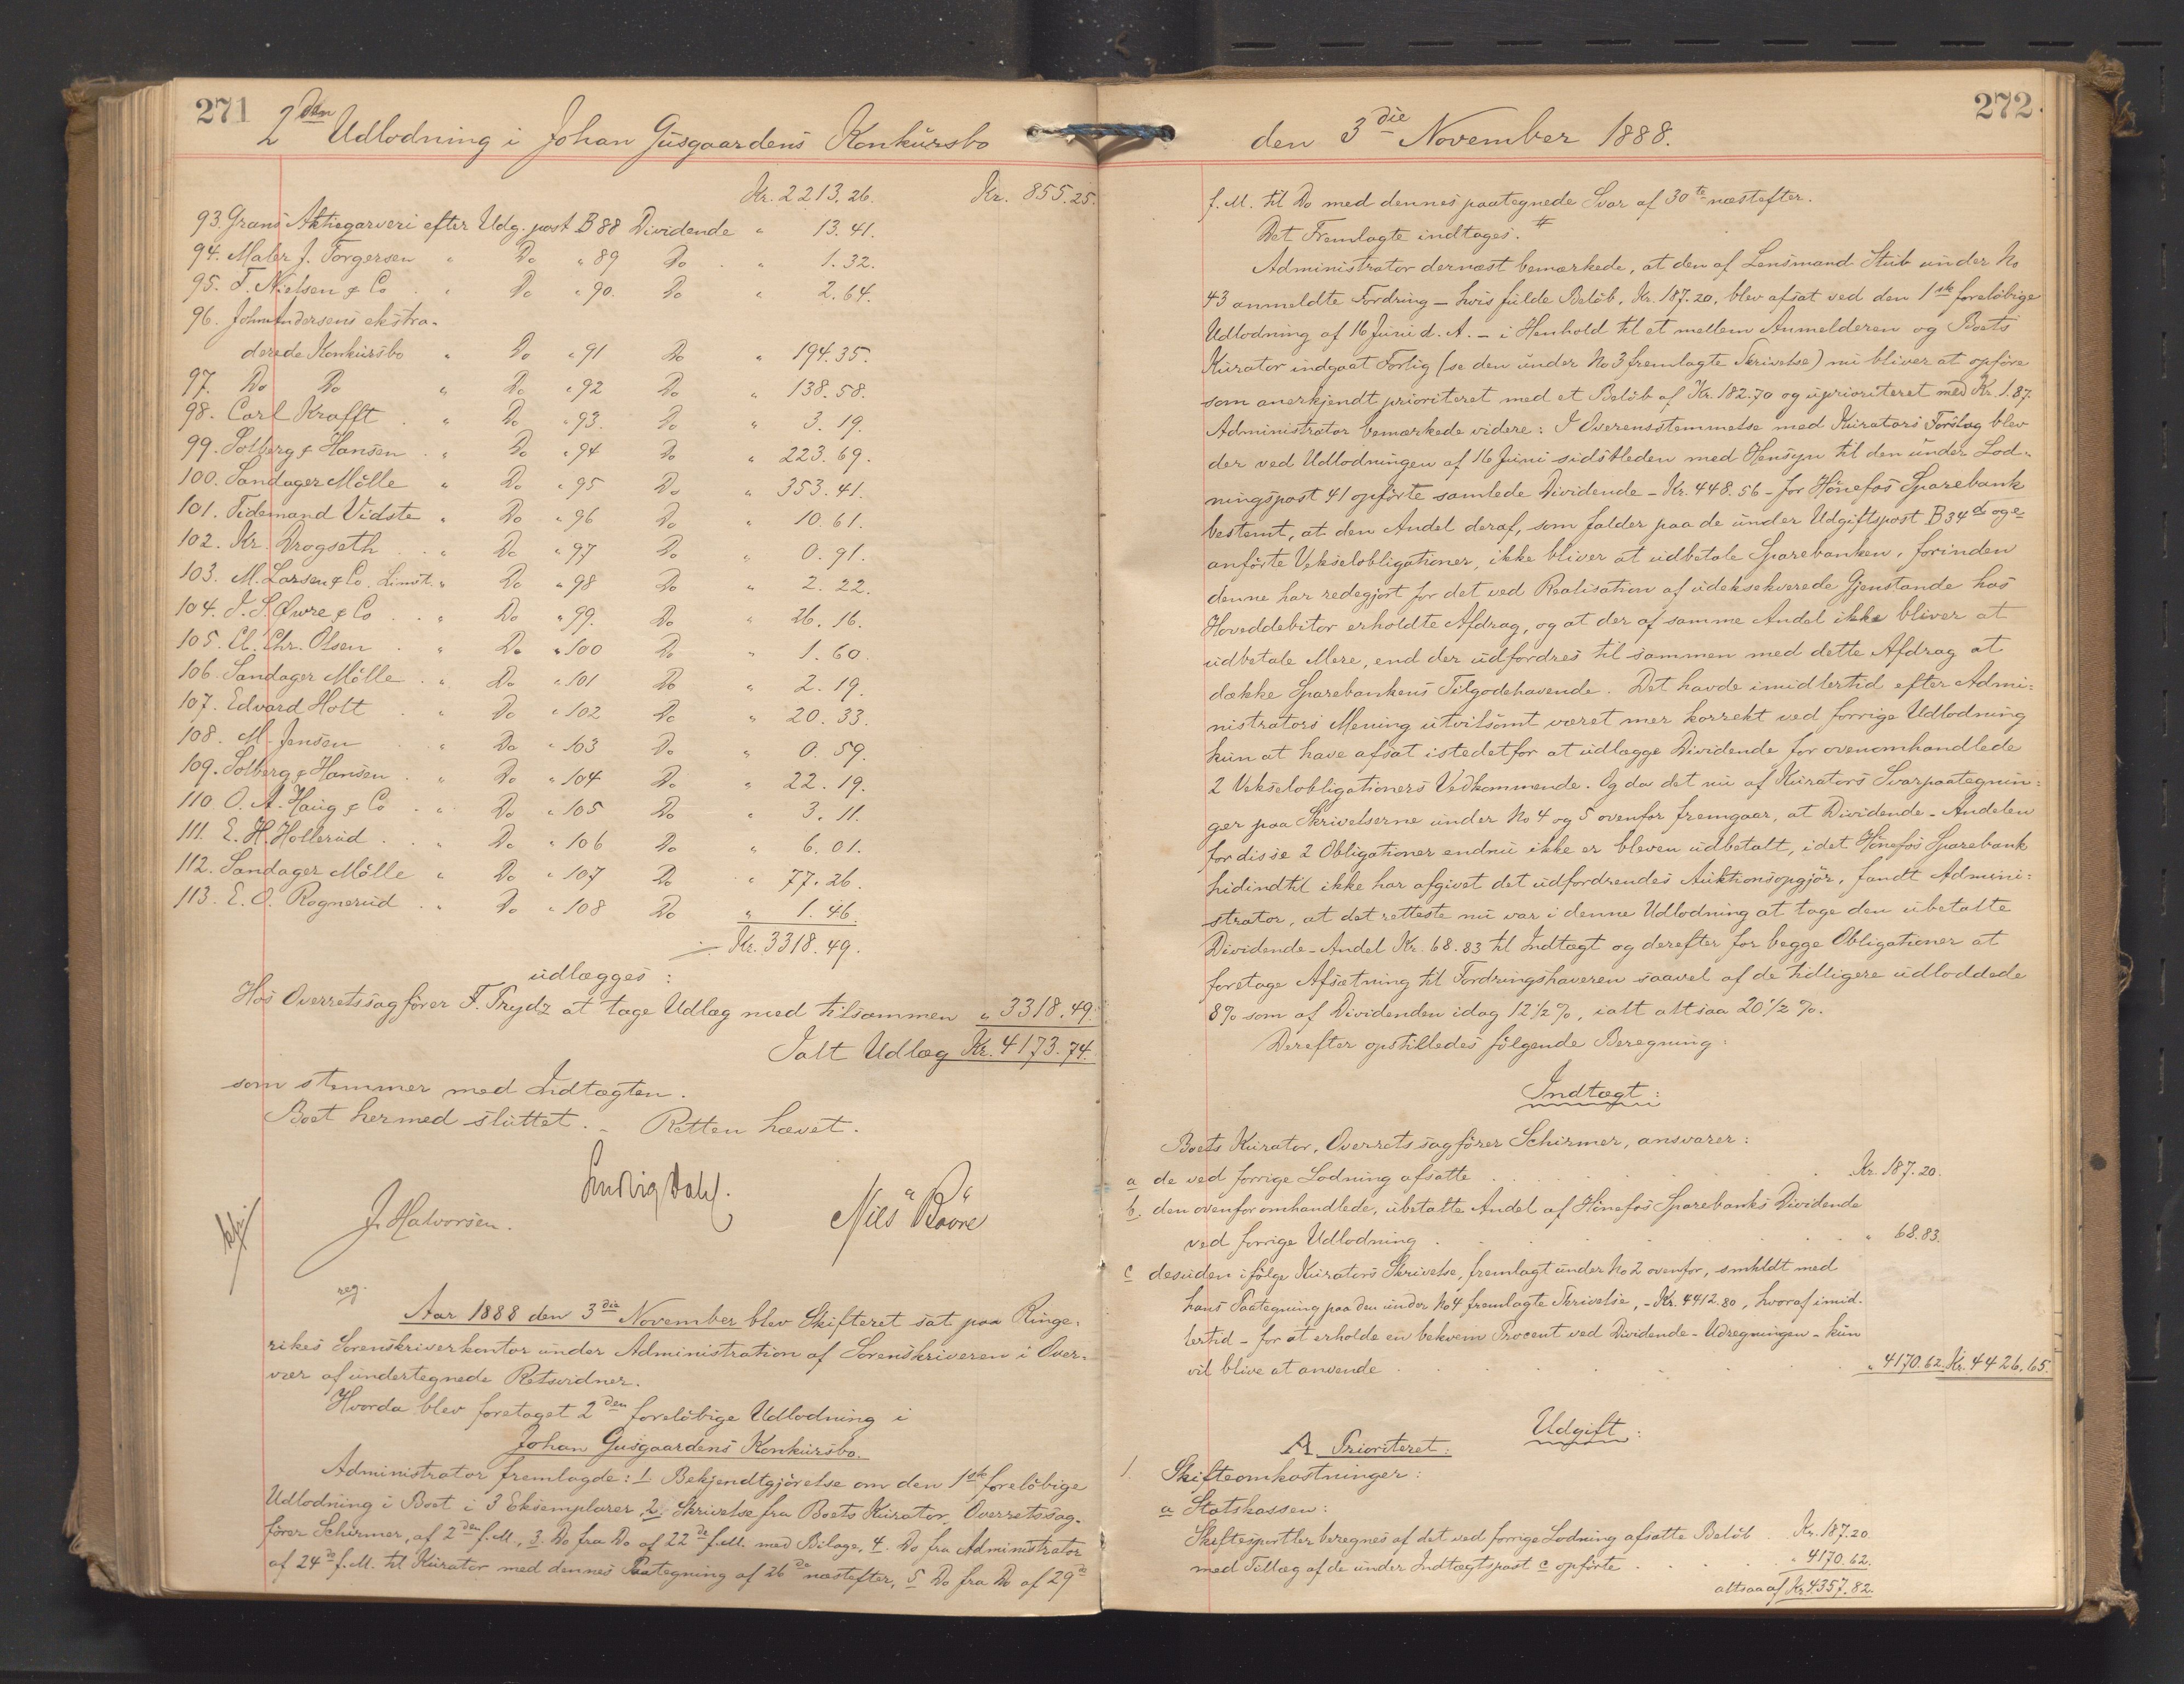 271
2den Udlodning i Johan Gusgaardens Konkursbo
Kr. 2213.26. Kr. 855.25.
93. Grans Aktiegarveri efter Udg. post B 88 Dividende " 13.41.
94. Maler J. Torgersen " Do " 89 Do " 1.32.
95. F. Nielsen & Co " Do " 90. Do " 2.64.
96. Johan Andersens ekstra-
derede Konkursbo " Do " 91 Do " 194.35.
97. Do Do " Do " 92 Do " 138.58.
98. Carl Krafft " Do " 93. Do " 3.19.
99. Solberg & Hansen " Do " 94 Do " 223.69.
100. Sandager Mölle " Do " 95 Do " 353.41.
101. Tidemand Vidste " Do " 96 Do " 10.61.
102. Kr. Drogseth " Do " 97 Do " 0.91.
103. M. Larsen & Co. Limit. " Do " 98 Do " 2.22.
104. J. S. Øwre & Co " Do " 99. Do " 26.16.
105. Cl. Chr. Olsen " Do " 100 Do " 1.60.
106. Sandager Mölle " Do " 101 Do " 2.19.
107. Edvard Holt " Do " 102 Do " 20.33.
108. M. Jensen " Do " 103 Do " 0.59.
109. Solberg & Hansen " Do " 104 Do " 22.19.
110. O. A. Haug & Co " Do " 105 Do " 3.11.
111. E. H. Hollerud " Do " 106 Do " 6.01.
112. Sandager Mölle " Do " 107 Do " 77.26.
113. E. O. Rognerud " Do " 108 Do " 1.46.
Kr. 3318.49.
udlægges:
Hos Overretssagförer F. Prydz at tage Udlæg med tilsammen " 3318.49.
Ialt Udlæg Kr. 4173.74.
som stemmer med Indtægten.
Boet hermed sluttet. - Retten hævet.
Ludvig Dahl.
J. Halvorsen. Nils Bööre
reg.
Aar 1888 den 3die November blev Skifteret sat paa Ringe-
rikes Sorenskriverkontor under Administration af Sorenskriveren i Over-
vær af undertegnede Retsvidner.
Hvorda blev foretaget 2den forelöbige Udlodning i
Johan Gusgaardens Konkursbo.
Administrator fremlagde: 1. Bekjendtgjörelse om den 1ste forelöbige
Udlodning i Boet i 3 Eksemplarer, 2. Skrivelse fra Boets Kurator, Overretssag-
förer Schirmer, af 2den f.M., 3. Do fra Do af 22de f.M. med Bilage, 4. Do fra Administrator
af 24de f.M. til Kurator med dennes Paategning af 26de næstefter, 5 Do fra Do af 29de
272.
den 3die November 1888.
f.M. til Do med dennes paategnede Svar af 30te næstefter.
Det Fremlagte indtages. #
Administrator dernæst bemærkede, at den af Lensmand Stub under No
43 anmeldte Fordring - hvis fulde Belöb, Kr. 187.20, blev afsat ved den 1ste forelöbige
Udlodning af 16 Juni d. A. - i Henhold til et mellem Anmelderen og Boets
Kurator indgaat Forlig (se den under No 3 fremlagte Skrivelse) nu bliver at opföre
som anerkjendt prioriteret med et Belöb af Kr. 182.70 og uprioriteret med Kr. 1.87.
Administrator bemærkede videre: I Overensstemmelse med Kurators Forslag blev
der ved Udlodningen af 16 Juni sidstleden med Hensyn til den under Lod-
ningspost 41 opförte samlede Dividende - Kr. 448.56 - for Hönefos Sparebank
bestemt, at den Andel deraf, som falder paa de under Udgiftspost B 34 d og e
anförte Vekselobligationer, ikke bliver at udbetale Sparebanken, forinden
denne har redegjort for det ved Realisation af udeksekverede Gjenstande hos
Hoveddebitor erholdte Afdrag, og at der af samme Andel ikke bliver at
udbetale Mere, end der udfordres til sammen med dette Afdrag at
dække Sparebankens Tilgodehavende. Det havde imidlertid efter Admi-
nistrators Mening utvilsomt været mer korrekt ved forrige Udlodning
kun at have afsat istedetfor at udlægge Dividende for ovenomhandlede
2 Vekselobligationers Vedkommende. Og da det nu af Kurators Svarpaategnin-
ger paa Skrivelserne under No 4 og 5 ovenfor fremgaar, at Dividende-Andelen
for disse 2 Obligationer endnu ikke er bleven udbetalt, idet Hönefos Sparebank
hidindtil ikke har afgivet det udfordrendes Auktionsopgjör, fandt Admini-
strator, at det retteste nu var i denne Udlodning at tage den ubetalte
Dividende-Andel Kr. 68.83 til Indtægt og derefter for begge Obligationer at
foretage Afsætning til Fordringshaveren saavel af de tidligere udloddede
8% som af Dividenden idag 12 1/2 %, ialt altsaa 20 1/2 %.
Derefter opstilledes fölgende Beregning:
Indtægt:
Boets Kurator, Overretssagförer Schirmer, ansvarer:
a de ved forrige Lodning afsatte Kr. 187.20.
b. den ovenfor omhandlede, ubetalte Andel af Hönefos Sparebanks Dividende
ved forrige Udlodning " 68.83.
c desuden ifölge Kurators Skrivelse, fremlagt under No 2 ovenfor, smhldt med
hans Paategning paa den under No 4 fremlagte Skrivelse, - Kr. 4412.80, hvoraf imid-
lertid - for at erholde en bekvem Procent ved Dividende-Udregningen - kun
vil blive at anvende " 4170.62. Kr. 4426.65.
Udgift:
A. Prioriteret:
1. Skifteomkostninger:
a Statskassen:
Skiftesportler beregnes af det ved forrige Lodning afsatte Belöb Kr. 187.20.
med Tillæg af de under Indtægtspost c opförte " 4170.62.
altsaa af Kr. 4357.82.